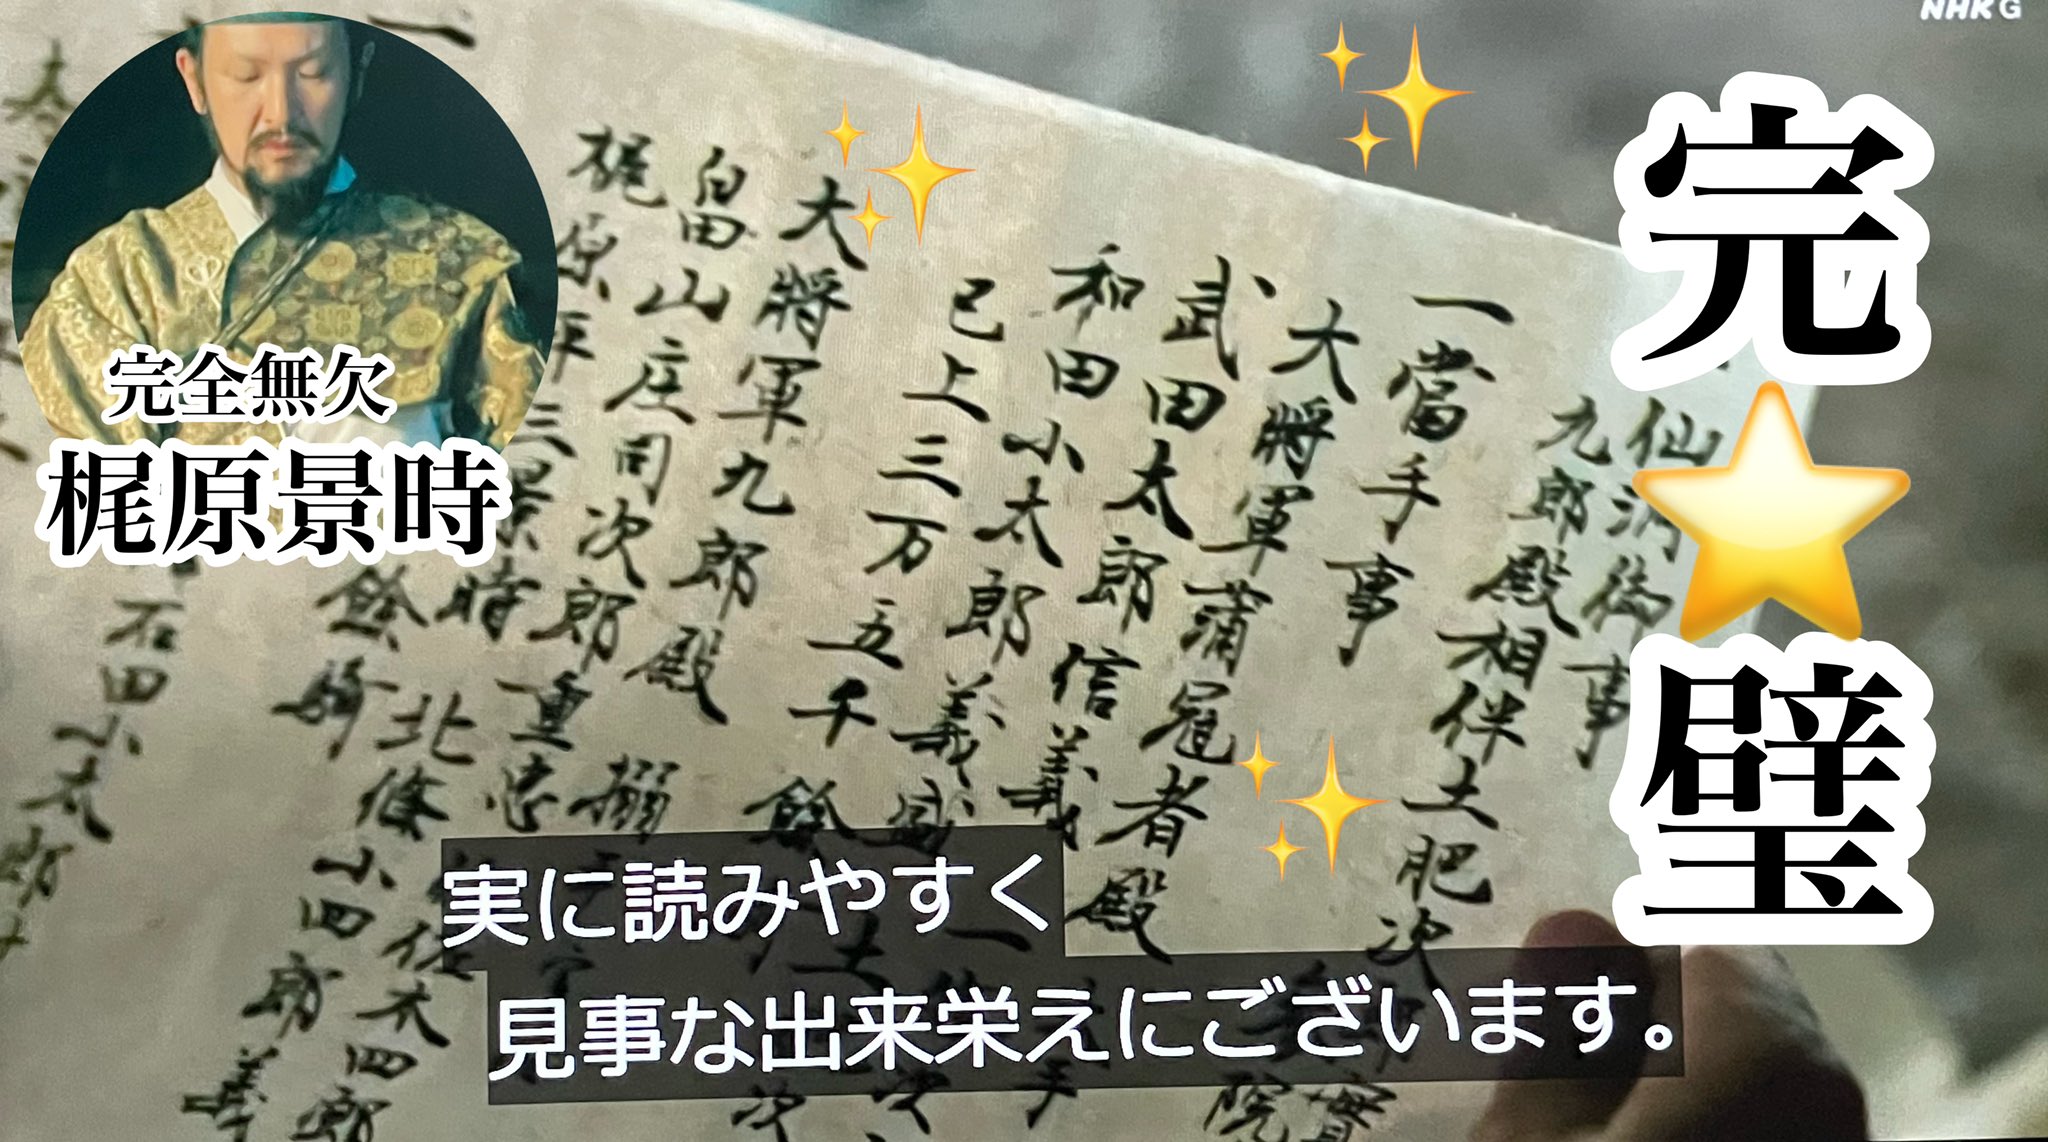 NHK G
完⭐璧
完全無欠
梶原景時
仙洞御事
九郎殿相伴土肥次郎實
一當手事
大将軍事
大将軍蒲冠者殿
武田太郎信義
和田小太郎義盛
已上三万五千餘
大将軍九郎殿
畠山庄司次郎重忠
梶原平三景時
餘騎
北條小四郎義
佐々木四郎
石田小太郎
実に読みやすく
見事な出来栄えにございます。